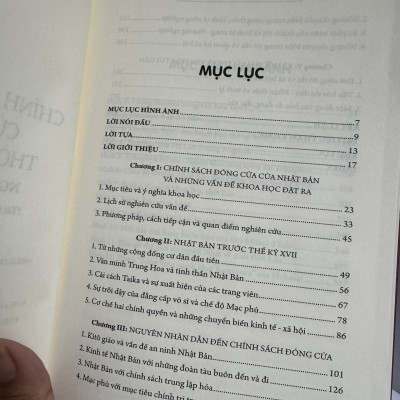 MỤC LỤC
MỤC LỤC HÌNH ẢNH 7
LỜI NÓI ĐẦU 9
LỜI TỰA 13
LỜI GIỚI THIỆU 17
Chương I: CHÍNH SÁCH ĐÓNG CỬA CỦA NHẬT BẢN
VÀ NHỮNG VẤN ĐỀ KHOA HỌC ĐẶT RA
1. Mục tiêu và ý nghĩa khoa học 23
2. Lịch sử nghiên cứu vấn đề 33
3. Phương pháp, cách tiếp cận và quan điểm nghiên cứu 45
Chương II: NHẬT BẢN TRƯỚC THẾ KỶ XVII
1. Từ những cộng đồng cư dân đầu tiên 49
2. Văn minh Trung Hoa và tinh thần Nhật Bản 56
3. Cải cách Taika và sự xuất hiện của các trang viên 67
4. Sự trỗi dậy của đẳng cấp võ sĩ và chế độ Mạc phủ 78
5. Cơ chế hai chính quyền và những chuyển biến kinh tế - xã hội 86
Chương III: NGUYÊN NHÂN DẪN ĐẾN CHÍNH SÁCH ĐÓNG CỬA
1. Kitô giáo và vấn đề an ninh Nhật Bản 101
2. Kinh tế Nhật Bản với những đoàn tàu buôn đến và đi 126
3. Nhật Bản với chính sách trung lập hóa
4. Mạc phủ với mục tiêu chính trị